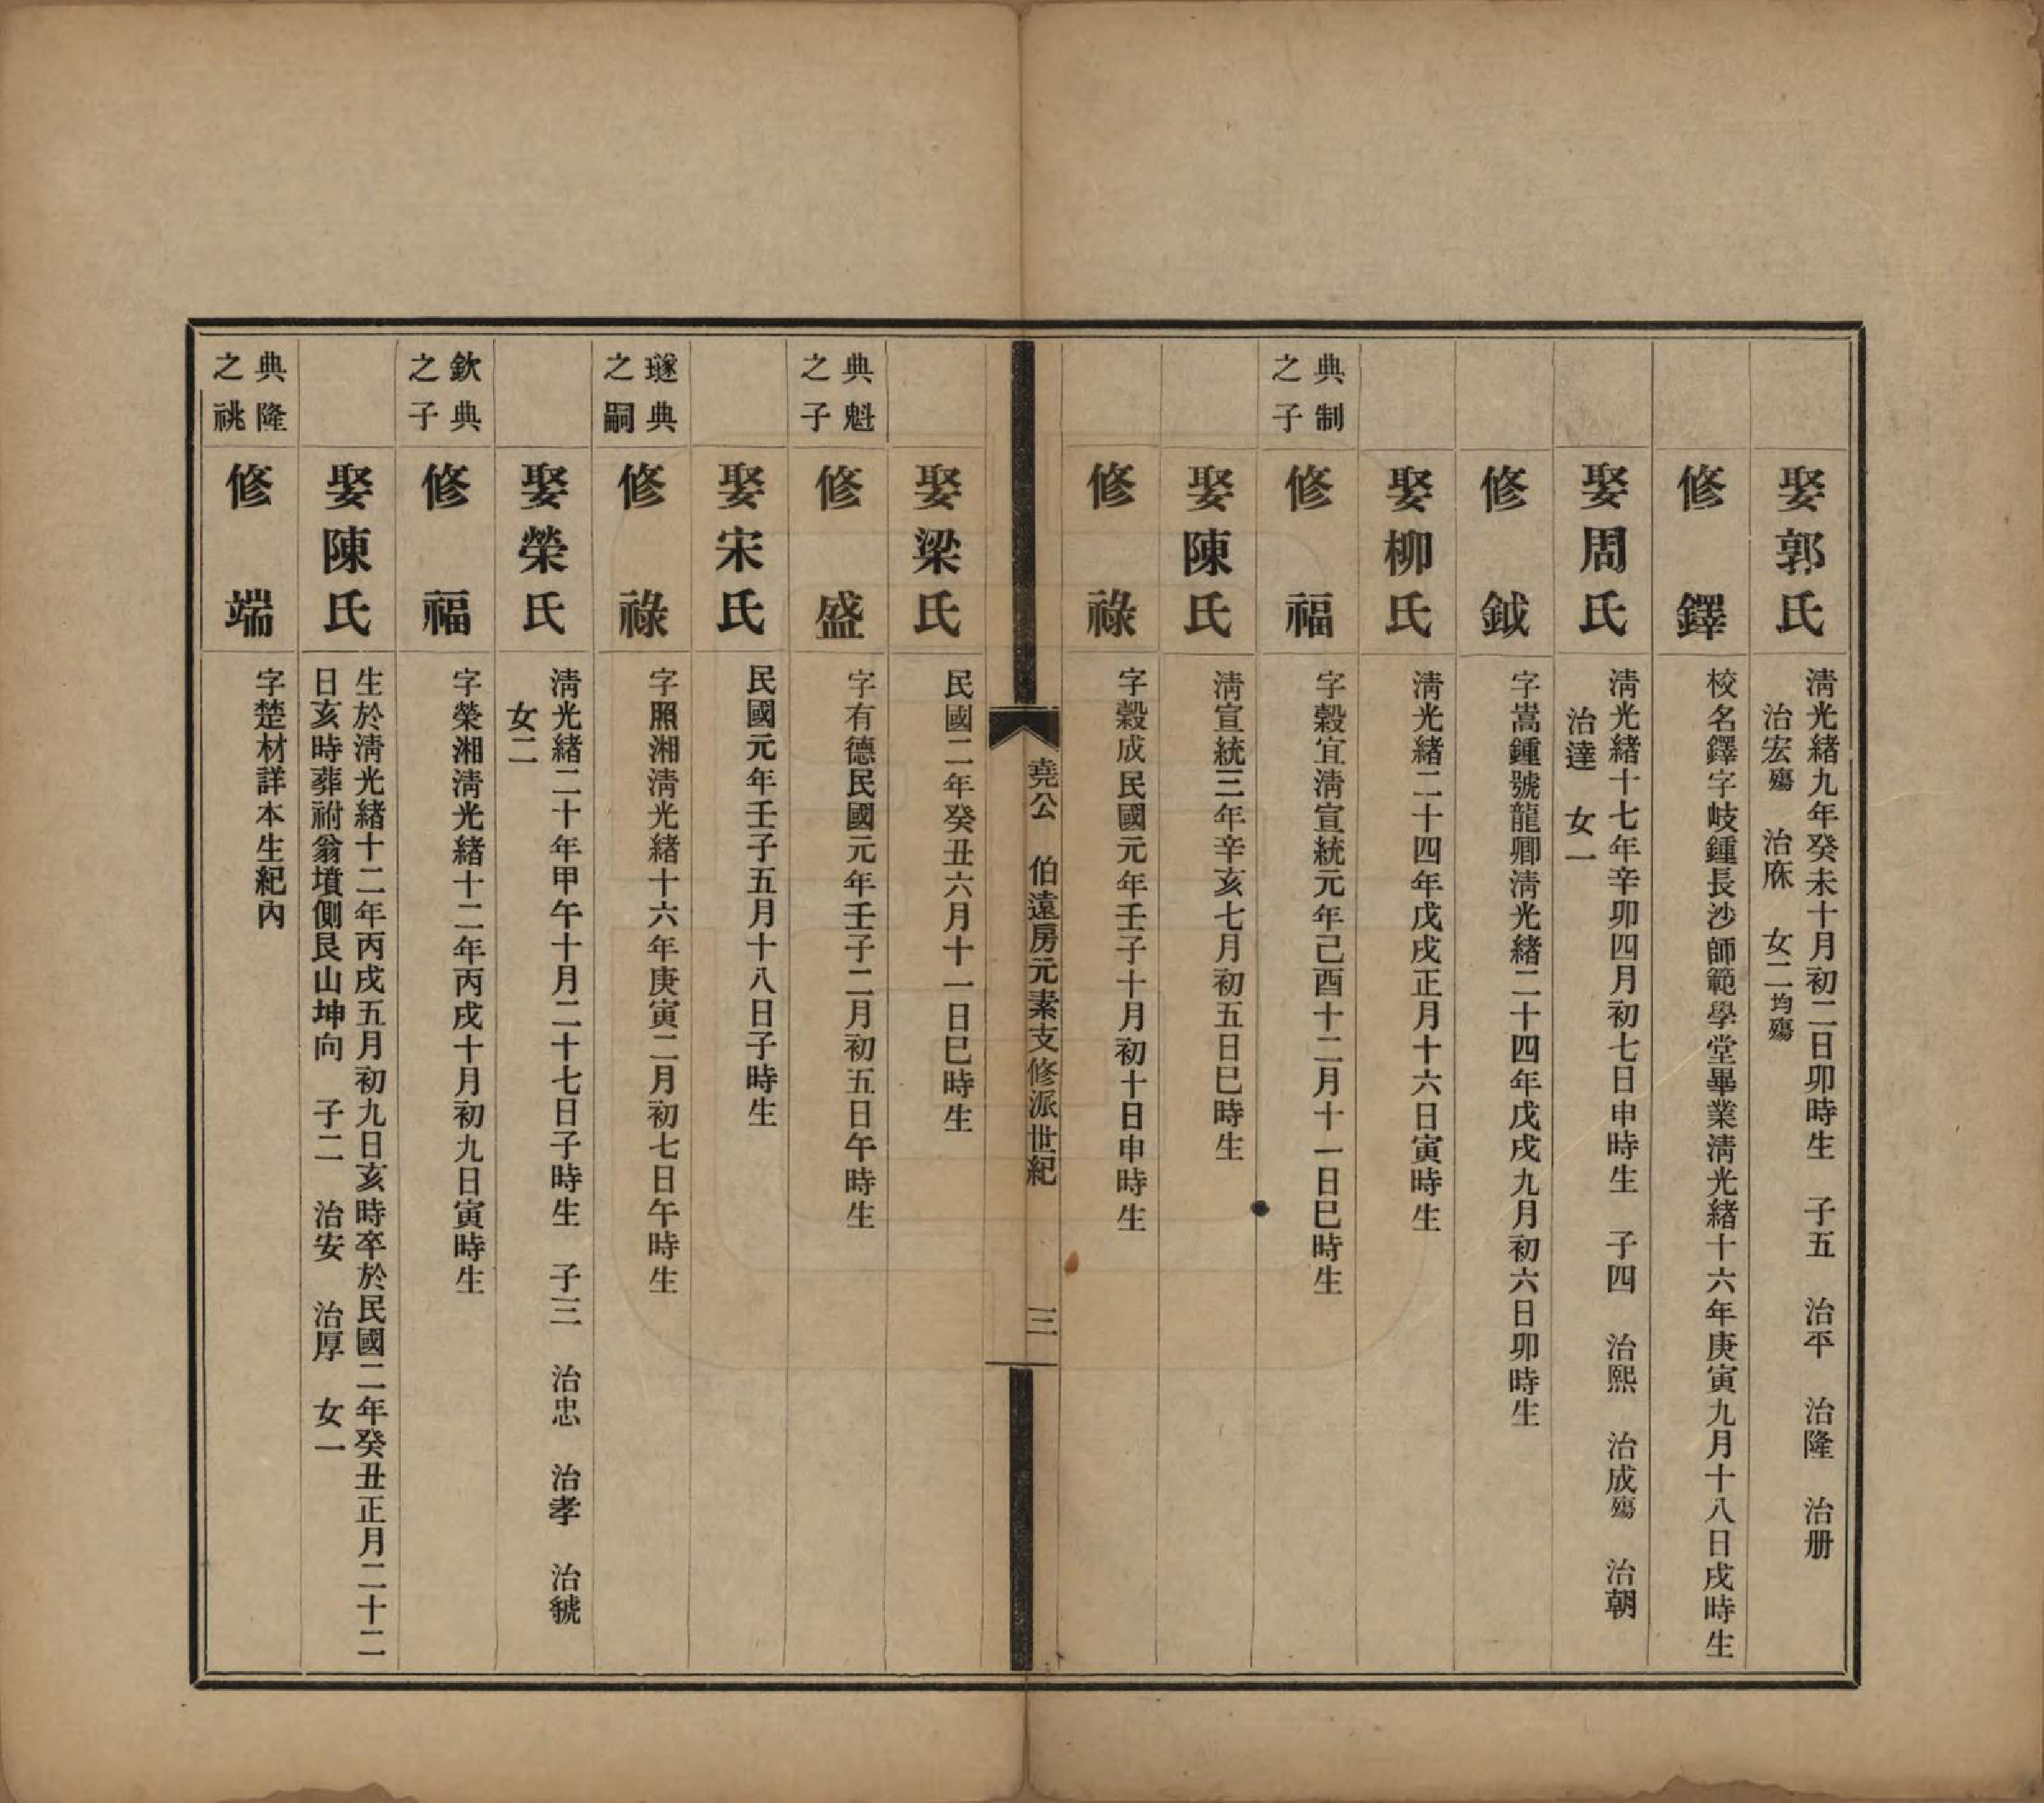 娶郭氏
清光緒九年癸未十月初二日卯時生　子五　治平　治隆　治册
治宏殤　治庥　女二均殤
修鐸
校名鐸字岐鍾長沙師範學堂畢業清光緒十六年庚寅九月十八日戌時生
娶周氏
清光緒十七年辛卯四月初七日申時生　子四　治熙　治成殤　治朝
治達　女一
修鉞
字嵩鍾號龍卿清光緒二十四年戊戌九月初六日卯時生
娶柳氏
清光緒二十四年戊戌正月十六日寅時生
典制
之子
修福
字穀宜清宣統元年己酉十二月十一日巳時生
娶陳氏
清宣統三年辛亥七月初五日巳時生
修祿
字穀成民國元年壬子十月初十日申時生
堯公　伯遠房元素支修派世紀　三
娶梁氏
民國二年癸丑六月十一日巳時生
典魁
之子
修盛
字有德民國元年壬子二月初五日午時生
娶宋氏
民國元年壬子五月十八日子時生
璲典
之嗣
修祿
字照湘清光緒十六年庚寅二月初七日午時生
娶榮氏
清光緒二十年甲午十月二十七日子時生　子三　治忠　治孝　治虢
女二
欽典
之子
修福
字榮湘清光緒十二年丙戌十月初九日寅時生
娶陳氏
生於清光緒十二年丙戌五月初九日亥時卒於民國二年癸丑正月二十二
日亥時葬祔翁墳側艮山坤向　子二　治安　治厚　女一
典隆
之祧
修端
字楚材詳本生紀內